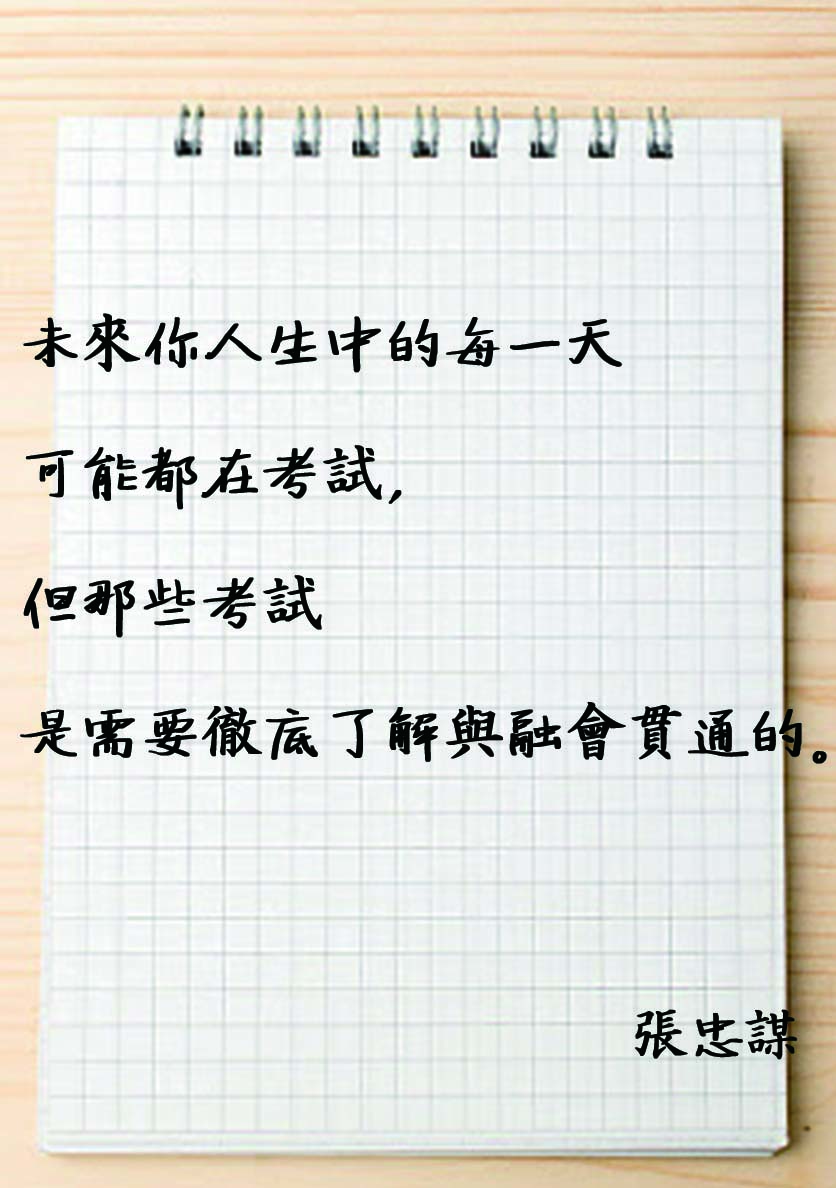 未來你人生中的每一天
可能都在考試,
但那些考試
是需要徹底了解與融會貫通的。
張忠謀